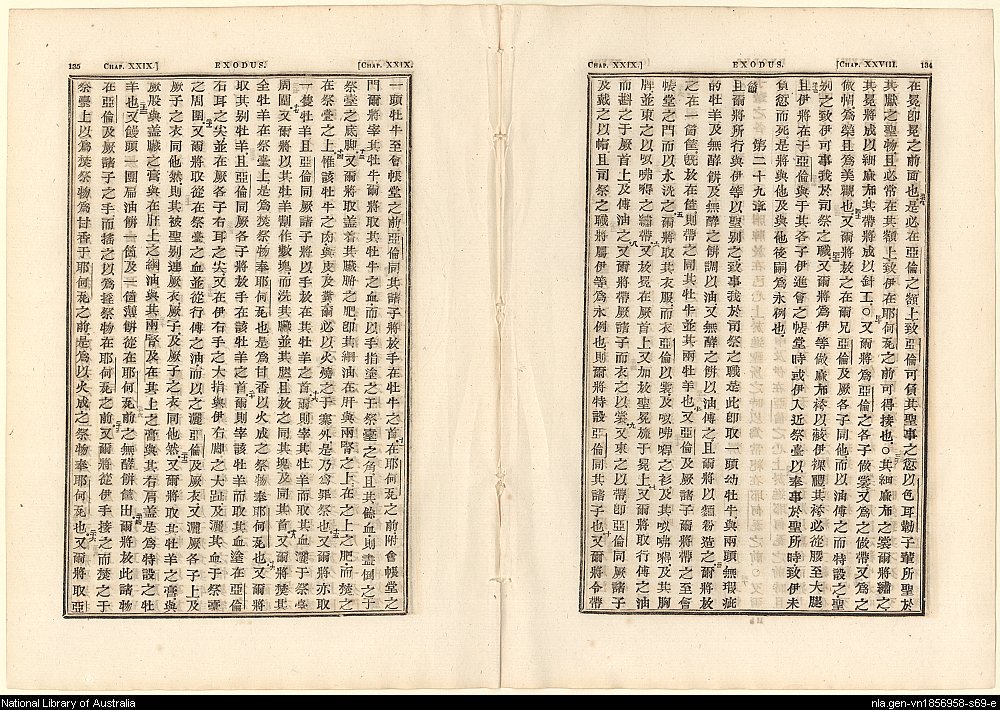 134
[CHAP. XXVIII.
EXODUS.
CHAP. XXIX.]
在冕卽冕之前面也是必在亞倫之額上致亞倫可負其聖事之愆以色耳勒子輩所聖於
其獻之聖物且必常在其額上致伊在耶何瓦之前可得接也○其細麻布之裳爾將繡之
其冕將成以細麻布其帶將成以針工○又爾將爲亞倫之各子做裳又爲之做帶又爲之
做帽爲榮且爲美觀也又爾將放之在爾兄亞倫及厥各子同他而以油傅之而特設之聖
別之致伊可事我於司祭之職又爾將爲伊等做麻布袴以蔽伊裸體其袴必從腰至大腿
且伊將在于亞倫與于其各子伊進會之帳堂時或伊大近祭臺以奉事於聖所時致伊未
負愆而死是將與他及與他後嗣爲永例也
第二十九章
且爾將所行與伊等以聖別之致事我於司祭之職是此卽取一頭幼牡牛與兩頭無瑕疵
的牡羊及無酵餅及無酵之餅調以油又無酵之餅以油傅之且爾將以麵粉造之爾將放
之在一箇筐旣放在筐則帶之同其牡牛並其兩牡羊也又亞倫及厥諸子爾將帶之至會
帳堂之門而以水洗之爾將取其衣服而衣亞倫以裳及㕸咈嘚之衫及其㕸咈嘚及其胸
牌並束之以㕸咈嘚之繡帶又放冕在厥首上又加放聖冕旒于冕上又爾將取行傅之油
而斟之于厥首上及傅油之又爾將帶厥諸子而衣之以裳又束之以帶卽亞倫同厥諸子
及戴之以帽且司祭之職將屬伊等爲永例也則爾將特設亞倫同其諸子也又爾將令帶
[CHAP. XXIX.
EXODUS.
CHAP. XXIX.]
135
一頭牡牛至會帳堂之前亞倫同其諸子將放手在牡牛之首在耶何瓦之前附會帳堂之
門爾將宰其牡牛爾將取其牡牛之血而以手指塗之于祭臺之角且其餘血則盡倒之于
祭臺之底脚又爾將取蓋着其臟腑之肥卽其綱油在肝與兩腎之上在之上之肥而焚之
在祭臺之上惟該牡牛之肉與皮及糞爾必以火燒之于寨外是乃爲罪祭也又爾將亦取
一隻牡羊且亞倫同厥諸子將以手放在其牡羊之首爾則宰其牡羊而取其血灑于祭臺
周圍又爾將以其牡羊割作數塊而洗其臟並其腿且放之同其塊及同其首又爾將焚其
全牡羊在祭臺上是爲焚祭物奉耶何瓦也是爲甘香以火成之祭物奉耶何瓦也又爾將
取其別牡羊且亞倫同厥各子將放手在該牡羊之首爾則宰該牡羊而取其血塗在亞倫
右耳之尖並在厥各子右耳之尖又在伊右手之大指與伊右脚之大趾及灑其血于祭臺
之周圍又爾將取從在祭臺之血並從行傅之油而以之灑亞倫及厥衣又灑厥各子上及
厥子之衣同他然則其被聖别連厥衣厥子及厥子之衣同他然又爾將取其牡羊之膏與
厥股與蓋臟之膏與在肝上之綱油與其兩腎及在其上之膏與其右肩蓋是爲特設之牡
羊也又饅頭一團扁油餅一箇及一箇薄餅從在耶何瓦前之無酵餅筐出爾將放此諸物
在亞倫及厥諸子之手而搖之以爲搖祭物在耶何瓦之前又爾將從伊手接之而焚之于
祭臺上以爲焚祭物爲甘香于耶何瓦之前是爲以火成之祭物奉耶何瓦也又爾將取亞
National Library of Australia
nla.gen-vn1856958-s69-e